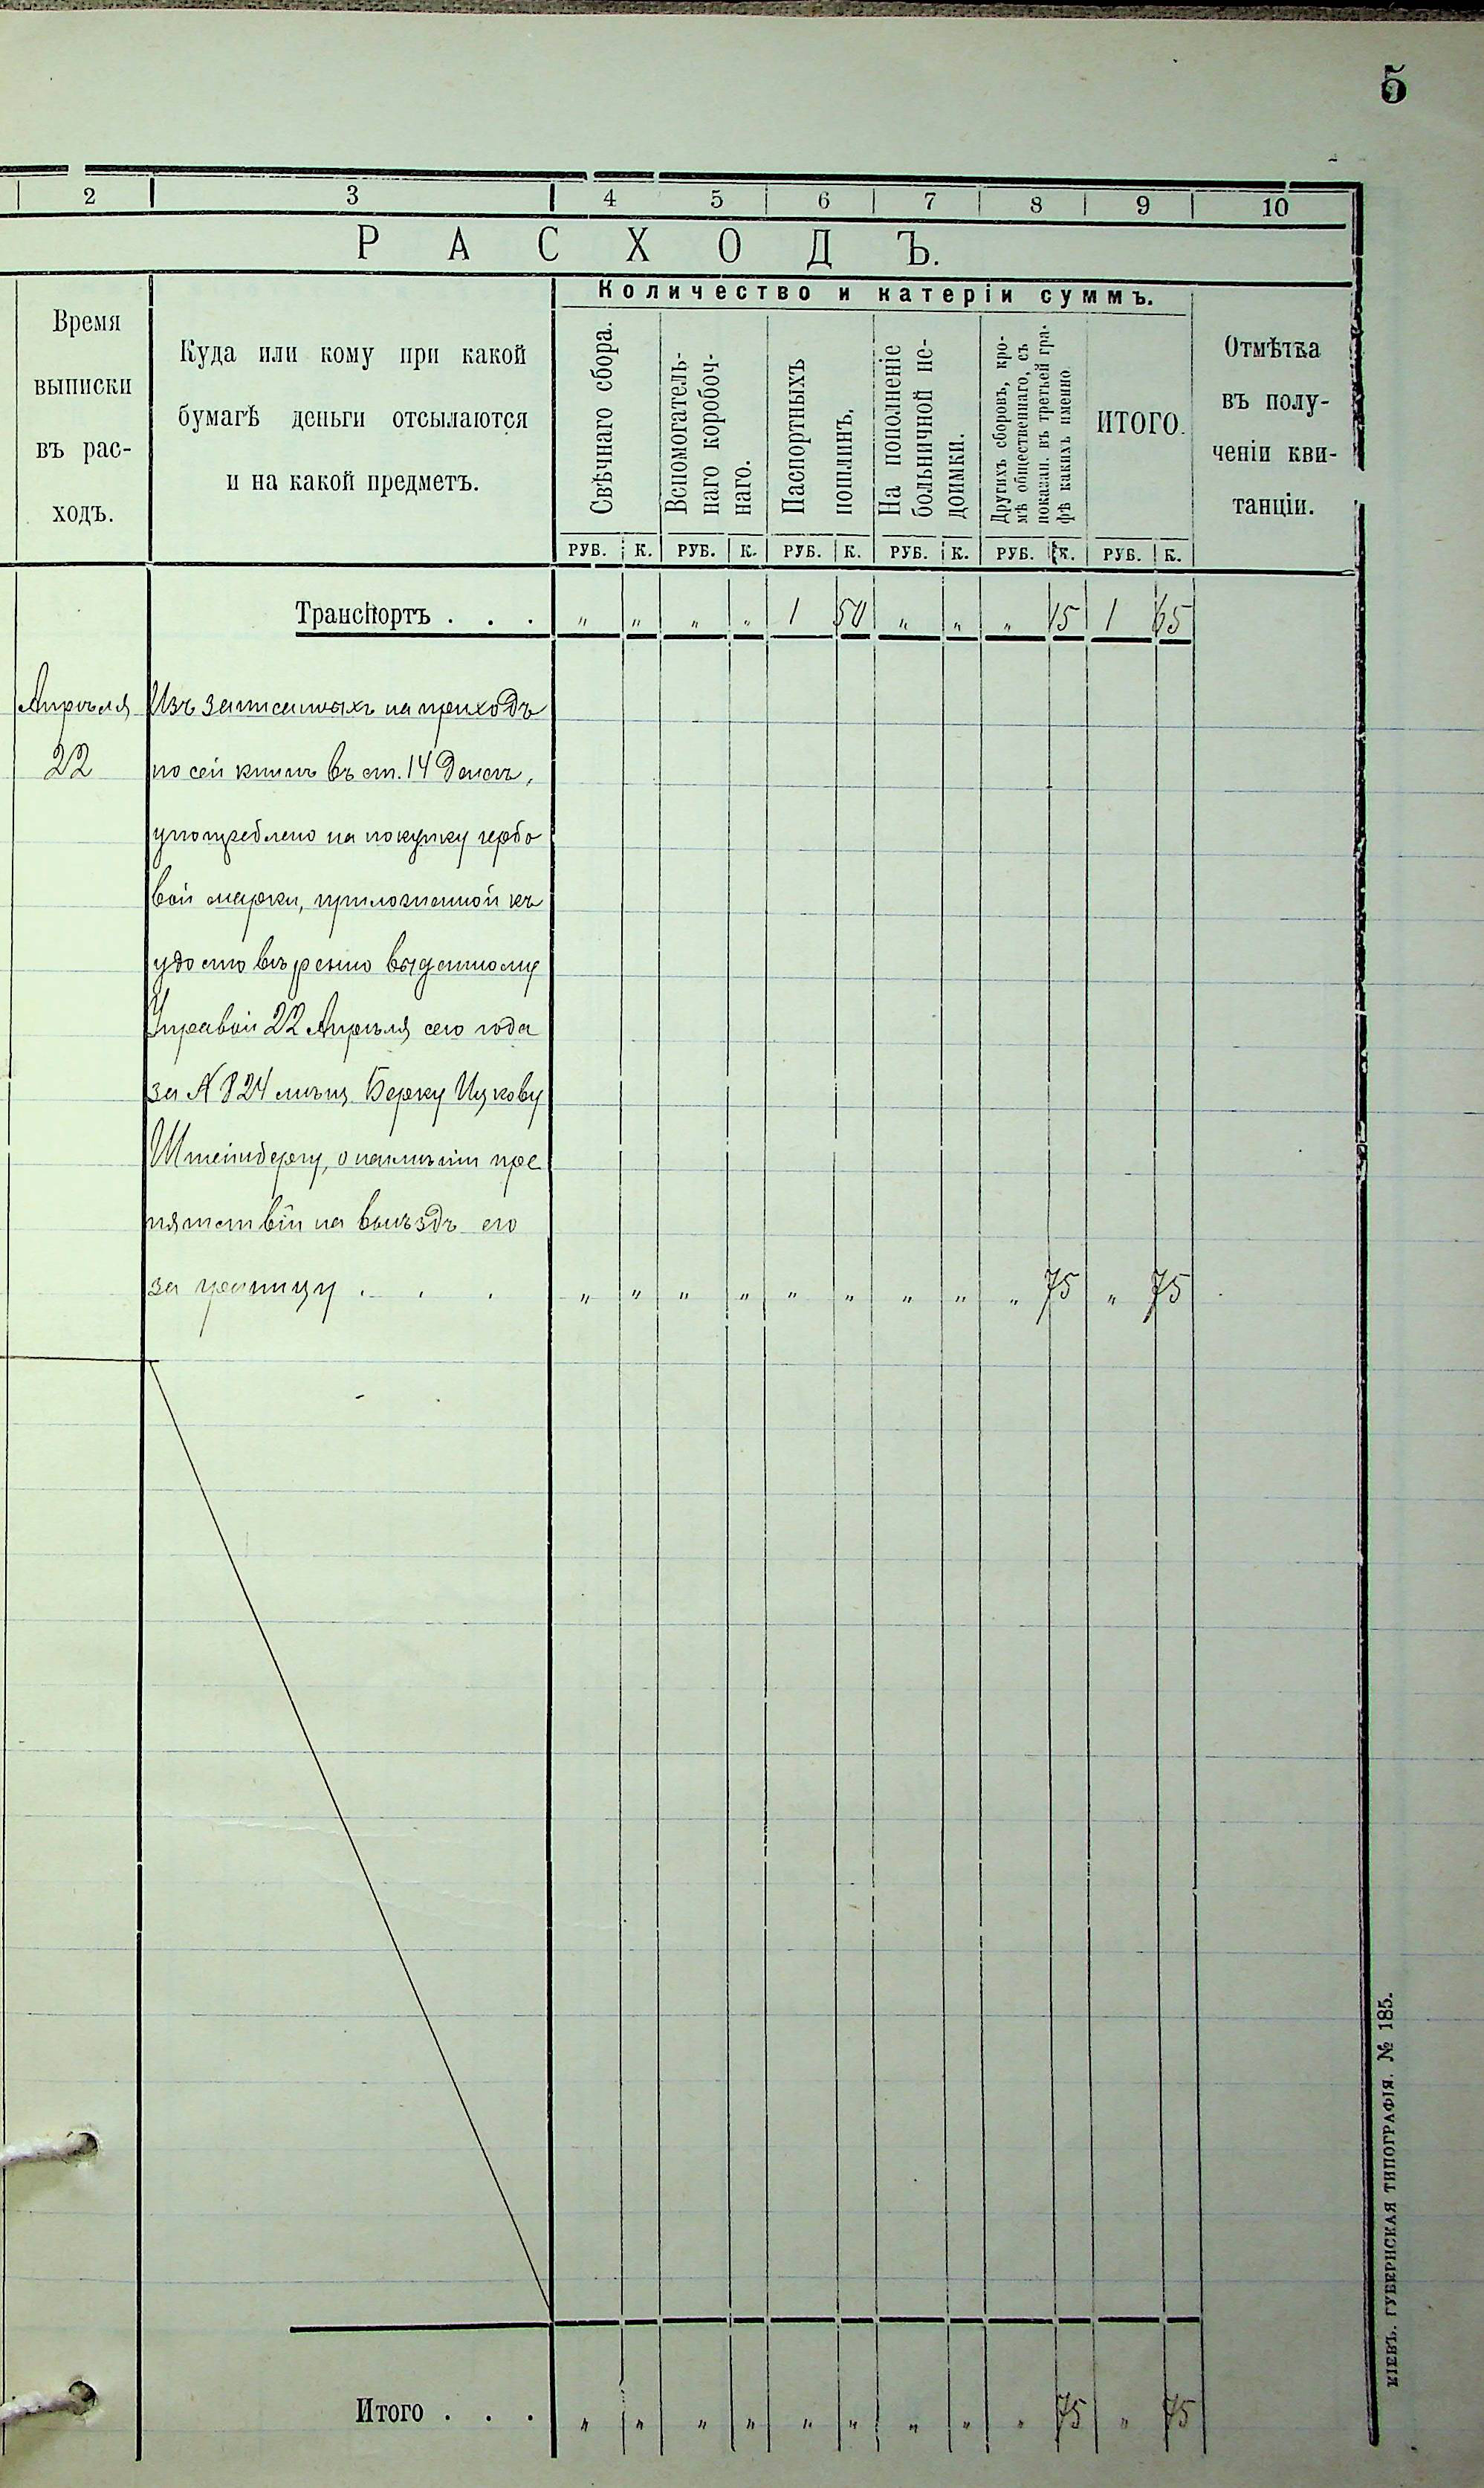 5
2 3 4 5 6 7 8 9 10
РАСХОДЪ.
Количество и катеріи суммъ.
Время
выписки
въ рас-
ходъ.
Куда или кому при какой
бумагѣ деньги отсылаются
и на какой предметъ.
Свѣчнаго сбора.
Вспомогатель-
наго коробоч-
наго.
Паспортныхъ
пошлинъ.
На пополненіе
больничной не-
доимки.
Другихъ сборовъ, кро-
мѣ общественнаго, съ
показан. въ третьей гра-
фѣ какихъ именно.
ИТОГО.
Отмѣтка
въ полу-
ченіи кви-
танціи.
РУБ. К. РУБ. К. РУБ. К. РУБ. К. РУБ. К. РУБ. К.
Транспортъ . . . " " " " 1 50 " " " 15 1 65
Апрѣля Изъ записанныхъ на приходъ
22 по сей книгѣ въ ст. 14 денегъ,
употреблено на покупку гербо
вой марки, приложенной къ
удостовѣренію выданному
Управой 22 Апрѣля сего года
за № 824 мѣщ. Берку Ицкову
Штейнбергу, о неимѣніи пре
пятствій на выѣздъ его
за границу . . . " " " " " " " " " 75 " 75
Итого . . . " " " " " " " " " 75 " 75
КІЕВЪ. ГУБЕРНСКАЯ ТИПОГРАФІЯ. № 185.